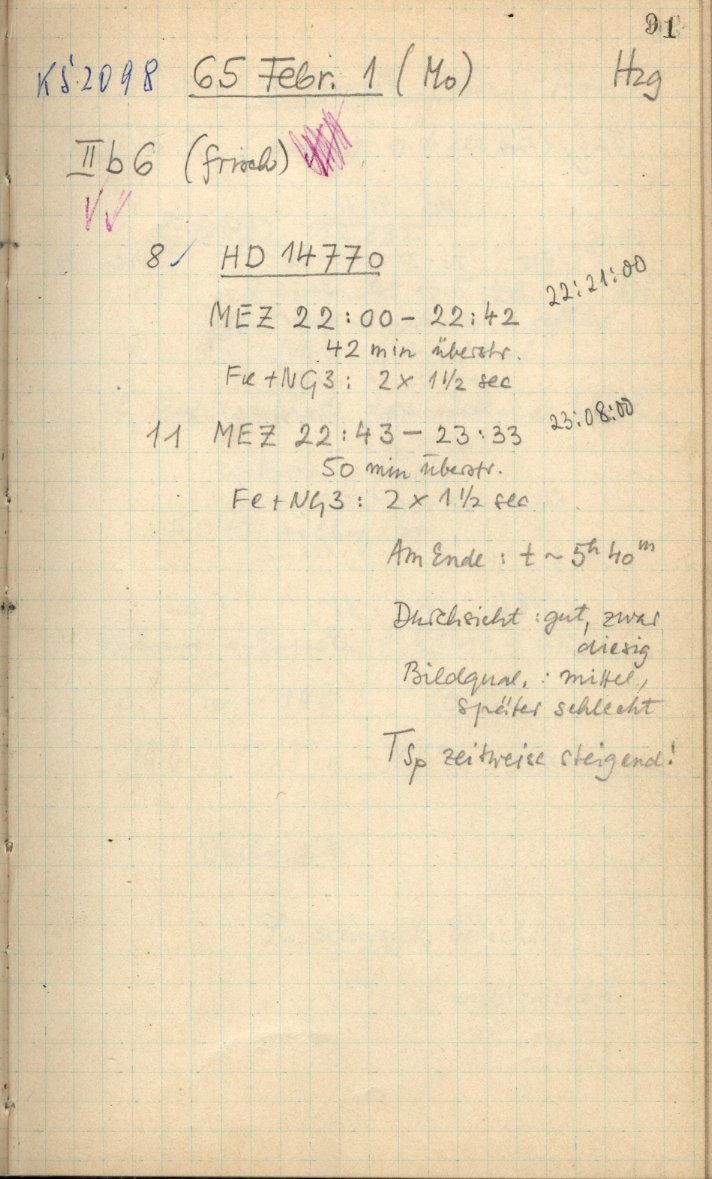 91
KŚ 2098 65 Febr. 1 (Mo) Hzg
II b 6 (frisch)
8 HD 14770
22:21:00
MEZ 22:00 – 22:42
42 min überstr.
Fe + NG3 : 2 x 1 1/2 sec
23:08:00
11 MEZ 22:43 – 23:33
50 min überstr.
Fe + NG3 : 2 x 1 1/2 sec
Am Ende : t ~ 5h 40m
Durchsicht : gut, zwar
diesig
Bildqual. : mittel,
später schlecht
TSp zeitweise steigend!